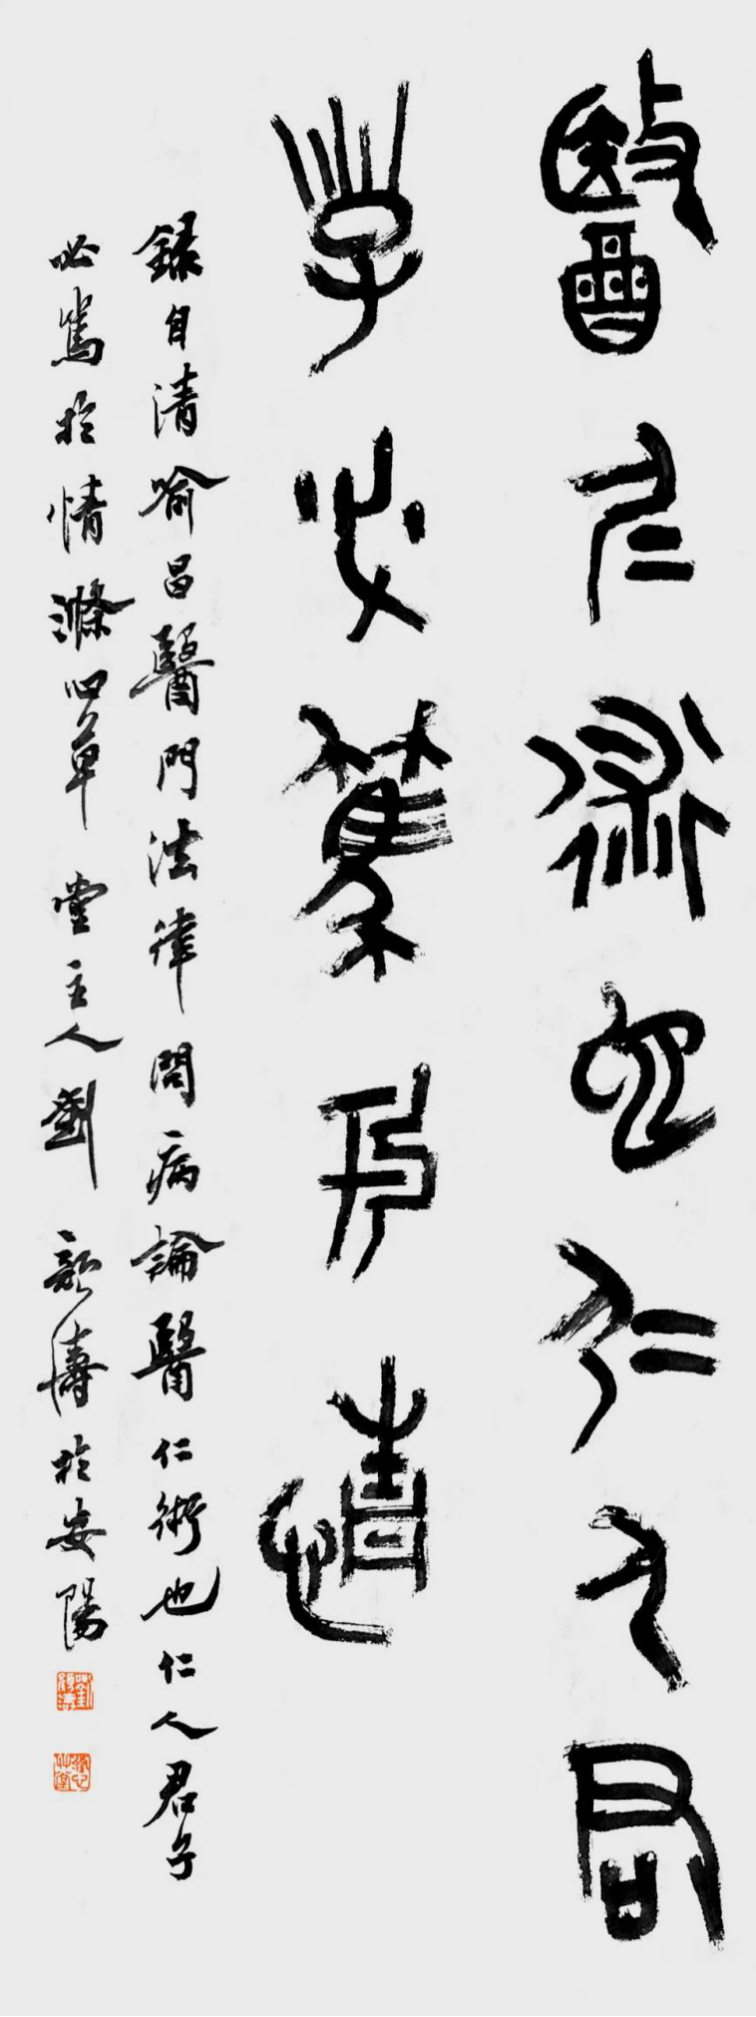 醫仁術也仁人君
子必篤於情
錄自清喻昌醫門法律問病論醫仁術也仁人君子
必篤於情滌心草堂主人劉顏濤於安陽